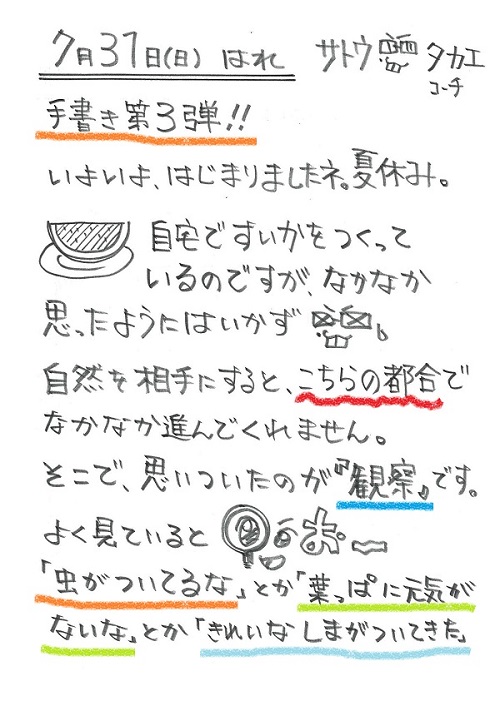 7月31日(日) はれ サトウ タカエ
コーチ
手書き第3弾!!
いよいよ、はじまりましたネ。夏休み。
自宅ですいかをつくって
いるのですが、なかなか
思ったようにはいかず
自然を相手にすると、こちらの都合で
なかなか進んでくれません。
そこで、思いついたのが『観察』です。
よく見ていると お〜
「虫がついてるな」とか「葉っぱに元気が
ないな」とか「きれいなしまがついてきた」